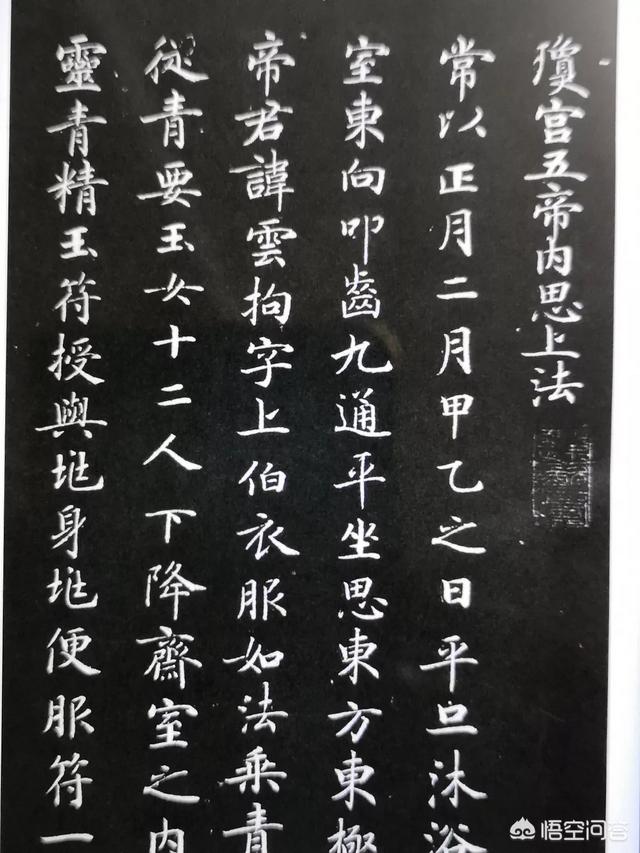 瓊宫五帝内思上法
常以正月二月甲乙之日平旦沐浴
室東向叩齒九通平坐思東方東極
帝君諱雲拘字上伯衣服如法乘青
從青要玉女十二人下降齋室之内
靈青精玉符授與垗身垗便服符一
悟空问答